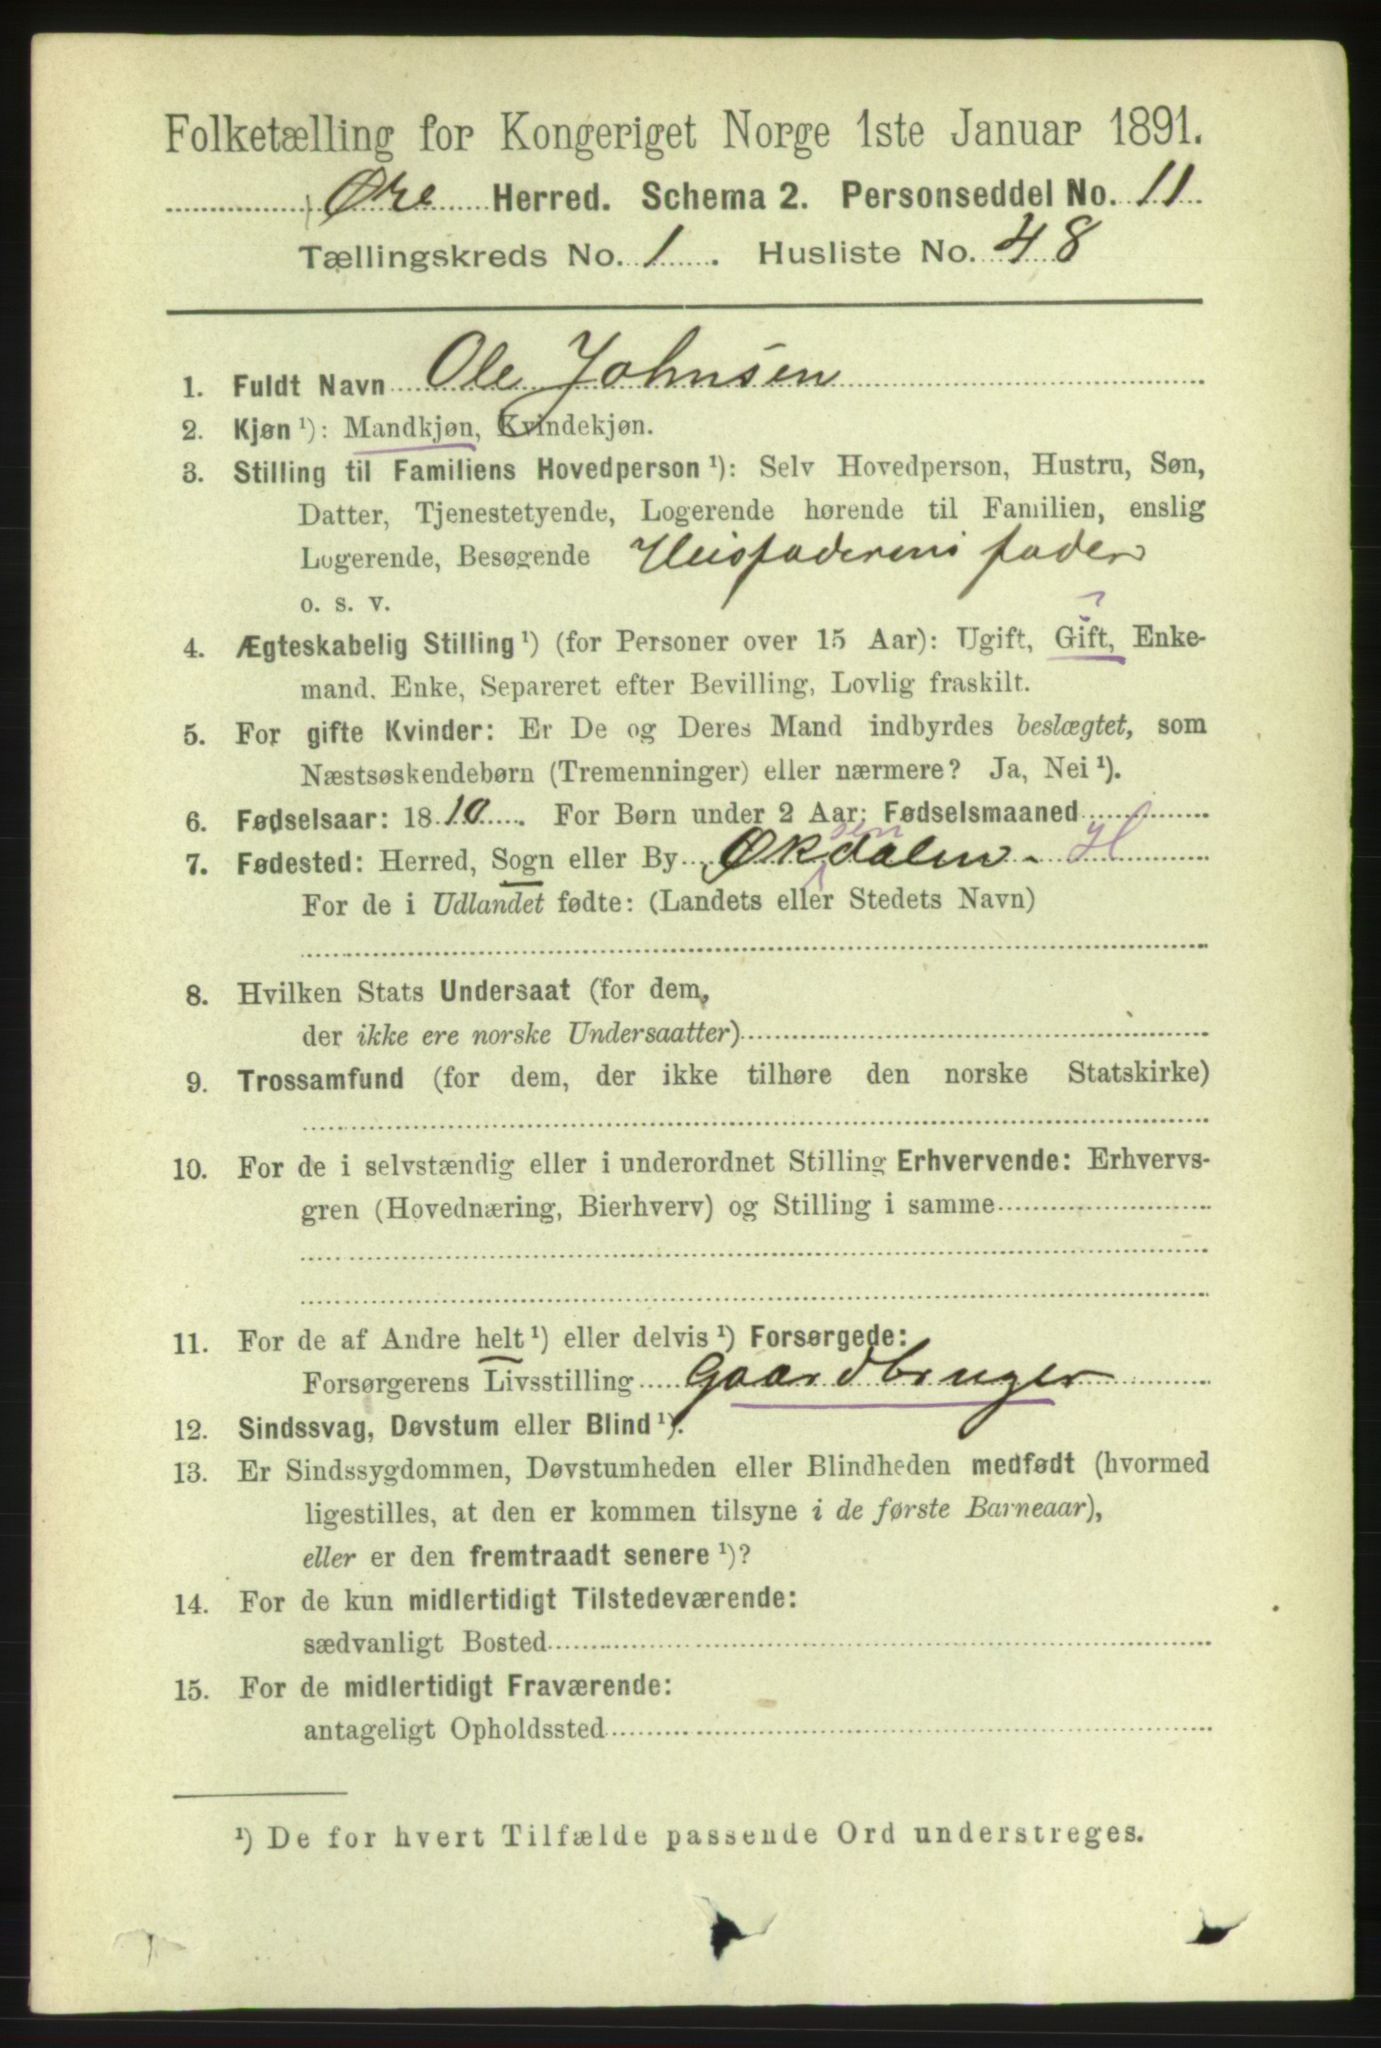 Folketælling for Kongeriget Norge 1ste Januar 1891.
Øre Herred. Schema 2. Personseddel No. 11
Tællingskreds No. 1. Husliste No. 48
1. Fuldt Navn Ole Johnsen
2. Kjøn ¹): Mandkjøn, Kvindekjøn.
3. Stilling til Familiens Hovedperson ¹): Selv Hovedperson, Hustru, Søn,
Datter, Tjenestetyende, Logerende hørende til Familien, enslig
Logerende, Besøgende Husfaderens fader
o. s. v.
4. Ægteskabelig Stilling ¹) (for Personer over 15 Aar): Ugift, Gift, Enke-
mand, Enke, Separeret efter Bevilling, Lovlig fraskilt.
5. For gifte Kvinder: Er De og Deres Mand indbyrdes beslægtet, som
Næstsøskendebørn (Tremenninger) eller nærmere? Ja, Nei ¹).
6. Fødselsaar: 1810. For Børn under 2 Aar: Fødselsmaaned
sen
7. Fødested: Herred, Sogn eller By Økdalen - H
For de i Udlandet fødte: (Landets eller Stedets Navn)
8. Hvilken Stats Undersaat (for dem,
der ikke ere norske Undersaatter)
9. Trossamfund (for dem, der ikke tilhøre den norske Statskirke)
10. For de i selvstændig eller i underordnet Stilling Erhvervende: Erhvervs-
gren (Hovednæring, Bierhverv) og Stilling i samme
11. For de af Andre helt ¹) eller delvis ¹) Forsørgede:
Forsørgerens Livsstilling Gaardbruger
12. Sindssvag, Døvstum eller Blind ¹).
13. Er Sindssygdommen, Døvstumheden eller Blindheden medfødt (hvormed
ligestilles, at den er kommen tilsyne i de første Barneaar),
eller er den fremtraadt senere ¹)?
14. For de kun midlertidigt Tilstedeværende:
sædvanligt Bosted
15. For de midlertidigt Fraværende:
antageligt Opholdssted
¹) De for hvert Tilfælde passende Ord understreges.